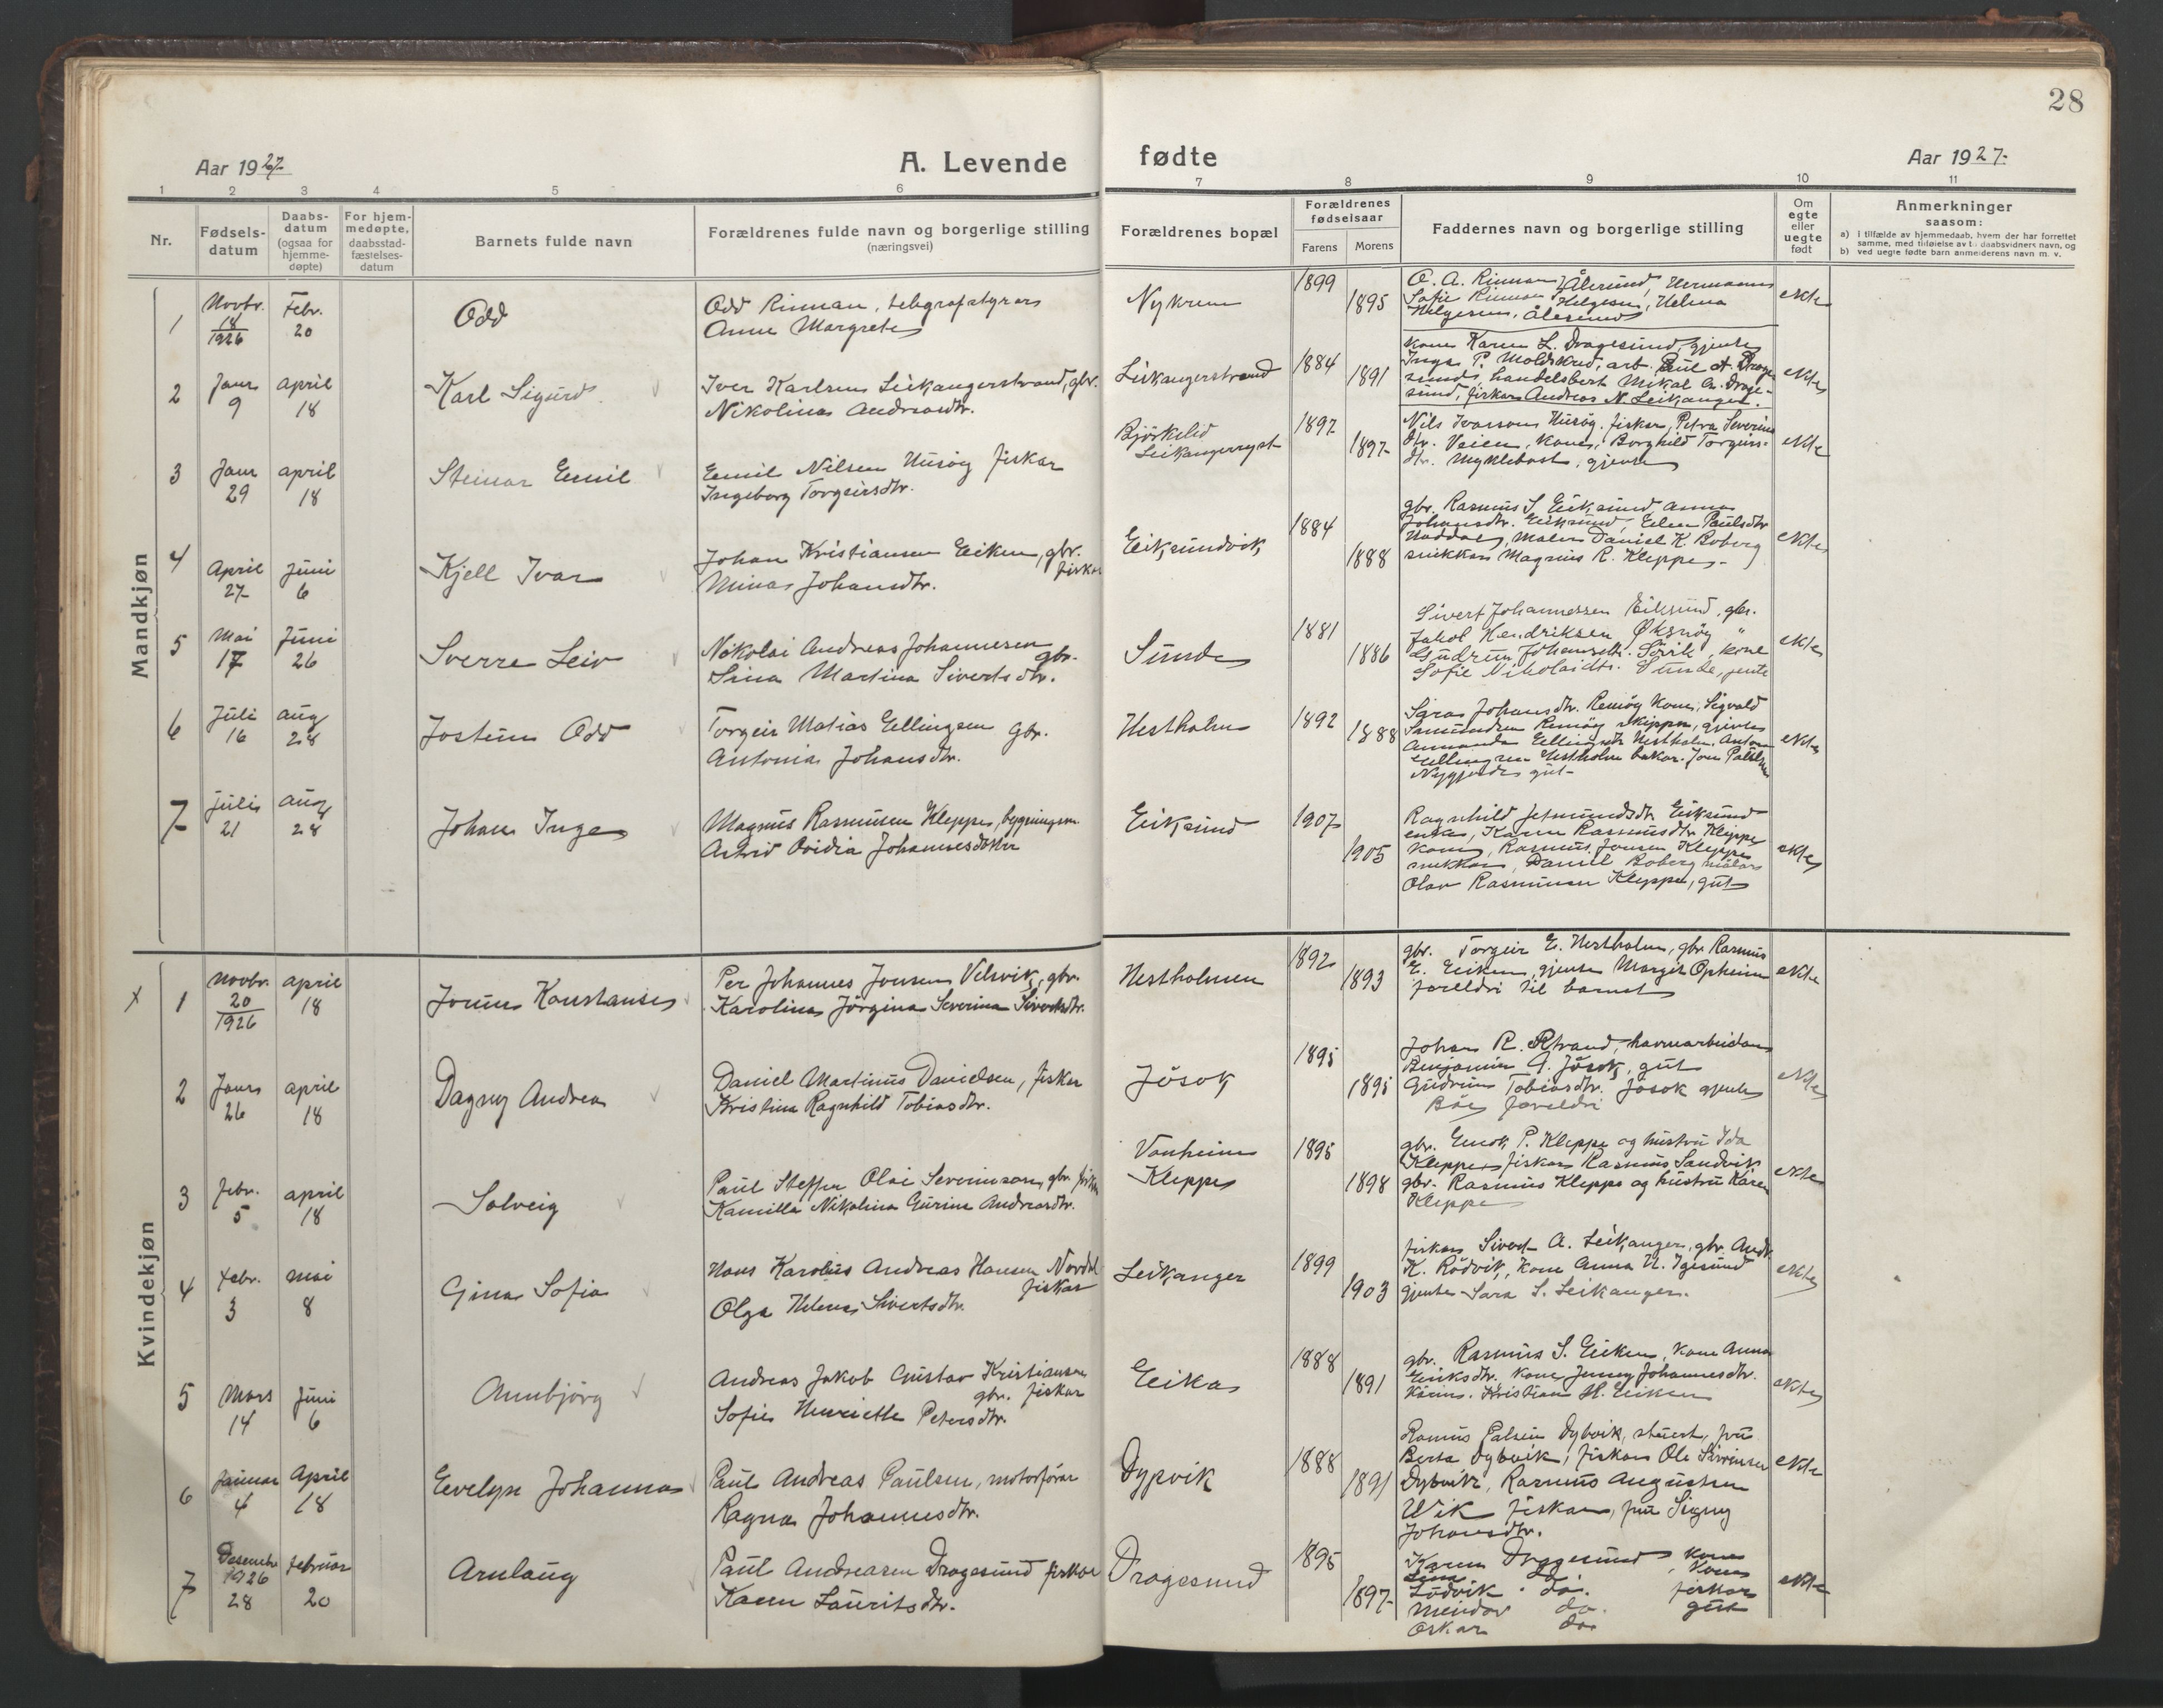 28
Aar 1927.
A. Levende
fødte
Aar 1927.
1 2 3 4 5 6 7 8 9 10 11
Nr.
Fødsels-
datum
Daabs-
datum
(ogsaa for
hjemme-
døpte)
For hjem-
medøpte,
daabsstad-
fæstelses-
datum
Barnets fulde navn
Forældrenes fulde navn og borgerlige stilling
(næringsvei)
Forældrenes bopæl
Forældrenes
fødselsaar
Farens
Morens
Faddernes navn og borgerlige stilling
Om
egte
eller
uegte
født
Anmerkninger
saasom:
a) i tilfælde av hjemmedaab, hvem der har forrettet
samme, med tilføielse av to daabsvidners navn, og
b) ved uegte fødte barn anmelderens navn m. v.
Mandkjøn
1
Novbr.
18
1926
Febr.
20
Odd
Odd Rinnan, telegrafstyrar
Anna Margrete
1899
1895
O. A. Rinnan, Ålesund, Hermann
Sofie Rinnan, Helgesen, Helena
Helgesen, Ålesund
ekte
2
Janr
9
april
18
Karl Sigurd
Iver Karlsen Leikangerstrand, gbr.
Nikolina Andreasdtr.
Leikangerstrand
1884
1891
kone Karen L. Dragesund, gjente
Inga P. Moldskred, arb. Paul A. Drage-
sund, handelsbest. Mikal A. Drage-
sund, fiskar Andreas N. Leikanger.
ekte
3
Janr
29
april
18
Steinar Emil
Emil Nilsen Husøy fiskar
Ingeborg Torgeirsdtr.
Bjørkelid
1897
1897
Nils Ivarson Husøy, fiskar, Petra Severins
dtr. Veien, kone, Borghild Torgeirs-
dtr. Myklebost, gjente
ekte
4
April
27
Juni
6
Kjell Ivar
Johan Kristiansen Eiken, gbr.
fiskar
Mina Johansdtr.
Eiksundvik
1884
1888
gbr. Rasmus S. Eiksund, Anna
Johansdtr. Eiksund, Elen Paulsdtr
Haddal, Maler Daniel K. Roberg
snikkar Magnus R. Kleppe.
ekte
5
Mai
17
Juni
26
Sverre Leiv
Nikolai Andreas Johannesen
gbr.
Lina Martina Sivertsdtr.
Sunde
1881
1886
Sivert Johannessen Eiksund, gbr.
Jakob Hendriksen Øksnøy "
Gudrun Johansdtr. Sørvik, kone
Sofie Nikolaidtr. Sunde, jente
ekte
6
Juli
16
aug
28
Jostein Odd
Torgeir Matias Ellingsen gbr.
Antonia Johansdtr.
Hestholm
1892
1888
Sara Johansdtr. Remøy kone, Sigvald
Samundsen Remøy skipper, gjente
Amanda Ellingsdtr Hestholm, Anton
Ellingsen Hestholm bakar. Jon Pålsen
Nygjerde gut
ekte
7
juli
21
aug
28
Johan Inge
Magnus Rasmusen Kleppe, bygningsm.
Astrid Ovidia Johannesdotter
Eiksund
1907
1905
Ragnhild Jetmundsdtr. Eiksund
enke, Karen Rasmusdtr. Kleppe
kone, Rasmus Jonsen Kleppe
snikkar, Daniel Roberg målar
Olav Rasmusen Kleppe, gut
ekte
Kvindekjøn
x
1
Novbr.
20
1926
april
18
Jorunn Konstanse
Per Johannes Jonsen Velsvik, gbr.
Karolina Jørgina Severina Sivertsdtr.
Hestholmen
1892
1893
gbr. Torgeir E. Hestholm, gbr Rasmus
E. Eiken, gjente Margit Opheim
foreldri til barnet
ekte
2
Janr
26
april
18
Dagny Andrea
Daniel Martinus Danielsen, fiskar
Kristina Ragnhild Tobiasdtr.
Jøsok
1895
1895
Johan R. Strand, havnarbeidar
Benjamin A. Jøsok, gut
Gudrun Tobiasdtr. Jøsok gjente
foreldri
ekte
3
febr.
5
april
18
Solveig
Paul Steffen Olai Severinson, gbr. fiskar
Kamilla Nikolina Gurine Andreasdtr.
Vanheim
Kleppe
1895
1898
gbr. Enok P. Kleppe og hustru Ida
Kleppe, fiskar Rasmus Sandvik
gbr. Rasmus Kleppe og hustru Karen
Kleppe
ekte
4
Febr.
3
mai
8
Gina Sofia
Hans Karolus Andreas Hansen Nordal
fiskar
Olga Helena Sivertsdtr.
Leikanger
1899
1903
fiskar Sivert A. Leikanger, gbr. Andr.
K. Rødvik, kone Anna N. Igesund
gjente Sara S. Leikanger.
ekte
5
Mars
14
Juni
6
Annbjørg
Andreas Jakob Gustav Kristiansen
gbr. fiskar
Sofie Henriette Petersdtr.
Eika
1888
1891
gbr. Rasmus S. Eiken, kone Anna
Eiriksdtr, kone Jenny Johannesdtr.
Kristian H. Eiken
ekte
6
Januar
4
April
18
Evelyn Johanna
Paul Andreas Paulsen, motorførar
Ragna Johannesdtr.
Dypvik
1888
1891
Rasmus Palsen Dybvik, stuert, fru
Berta Dybvik, fiskar Ole Severinsen
Dybvik, Rasmus Augustsen
Wik fiskar, fru Signy
Johansdtr.
ekte
7
Desember
1926
28
Februar
20
Arnlaug
Paul Andreasen Dragesund fiskar
Karen Lauritsdtr.
Dragesund
1895
1897
Karen Dragesund, kone
Lina do. kone
Ludvik do. fiskar
Meidor do. gut
Oskar do.
ekte